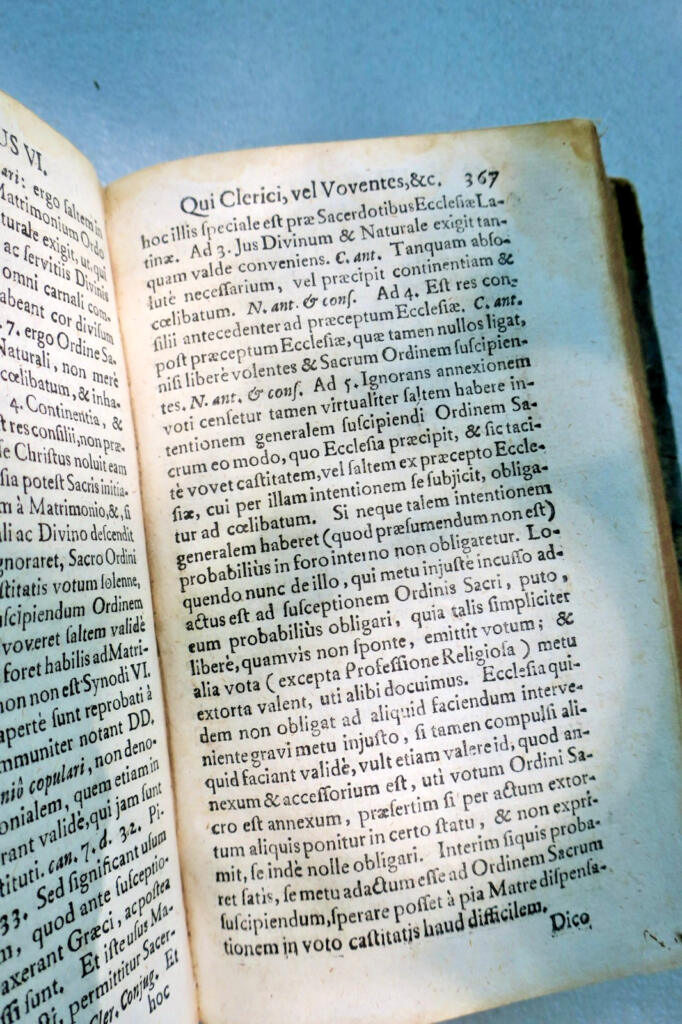 US VI.
ari: ergo saltem in
Matrimonium Ordo
turale exigit, ut, qui
ac servitiis Divinis
omni carnali com-
abeant cor divisum
. 7. ergo Ordine Sa-
Naturali, non merè
cœlibatum, & inha-
4. Continentia, &
st res consilii, non præ-
se Christus noluit eam
sia potest Sacris initia-
m à Matrimonio, &, si
li ac Divino descendit
gnoraret, Sacro Ordini
stitatis votum solenne,
uscipiendum Ordinem
voveret saltem validè
foret habilis ad Matri-
non non est Synodi VI.
apertè sunt reprobati à
mmuniter notant DD.
niô copulari, non deno-
onialem, quem etiam in
rant validè, qui jam sunt
tituti. can. 7. d. 32. Pi-
33. Sed significant usum
m, quod ante susceptio-
axerant Græci, ac postea
ssi sunt. Et iste usus Ma-
i, permittitur Sacer-
Cler. Conjug. Et
hoc
Qui Clerici, vel Voventes, &c. 367
hoc illis speciale est præ Sacerdotibus Ecclesiæ La-
tinæ. Ad 3. Jus Divinum & Naturale exigit tan-
quam valde conveniens. C. ant. Tanquam abso-
lutè necessarium, vel præcipit continentiam &
cœlibatum. N. ant. & cons. Ad 4. Est res con-
silii antecedenter ad præceptum Ecclesiæ. C. ant.
post præceptum Ecclesiæ, quæ tamen nullos ligat,
nisi liberè volentes & Sacrum Ordinem suscipien-
tes. N. ant. & cons. Ad 5. Ignorans annexionem
voti censetur tamen virtualiter saltem habere in-
tentionem generalem suscipiendi Ordinem Sa-
crum eo modo, quo Ecclesia præcipit, & sic taci-
tè vovet castitatem, vel saltem ex præcepto Eccle-
siæ, cui per illam intentionem se subjicit, obliga-
tur ad cœlibatum. Si neque talem intentionem
generalem haberet (quod præsumendum non est)
probabiliùs in foro interno non obligaretur. Lo-
quendo nunc de illo, qui metu injustè incusso ad-
actus est ad susceptionem Ordinis Sacri, puto,
eum probabiliùs obligari, quia talis simpliciter
liberè, quamvis non sponte, emittit votum; &
alia vota (excepta Professione Religiosa) metu
extorta valent, uti alibi docuimus. Ecclesia qui-
dem non obligat ad aliquid faciendum interve-
niente gravi metu injusto, si tamen compulsi ali-
quid faciant validè, vult etiam valere id, quod an-
nexum & accessorium est, uti votum Ordini Sa-
cro est annexum, præsertim si per actum extor-
tum aliquis ponitur in certo statu, & non expri-
mit, se indè nolle obligari. Interim siquis proba-
ret satis, se metu adactum esse ad Ordinem Sacrum
suscipiendum, sperare posset à pia Matre dispensa-
tionem in voto castitatis haud difficilem.
Dico